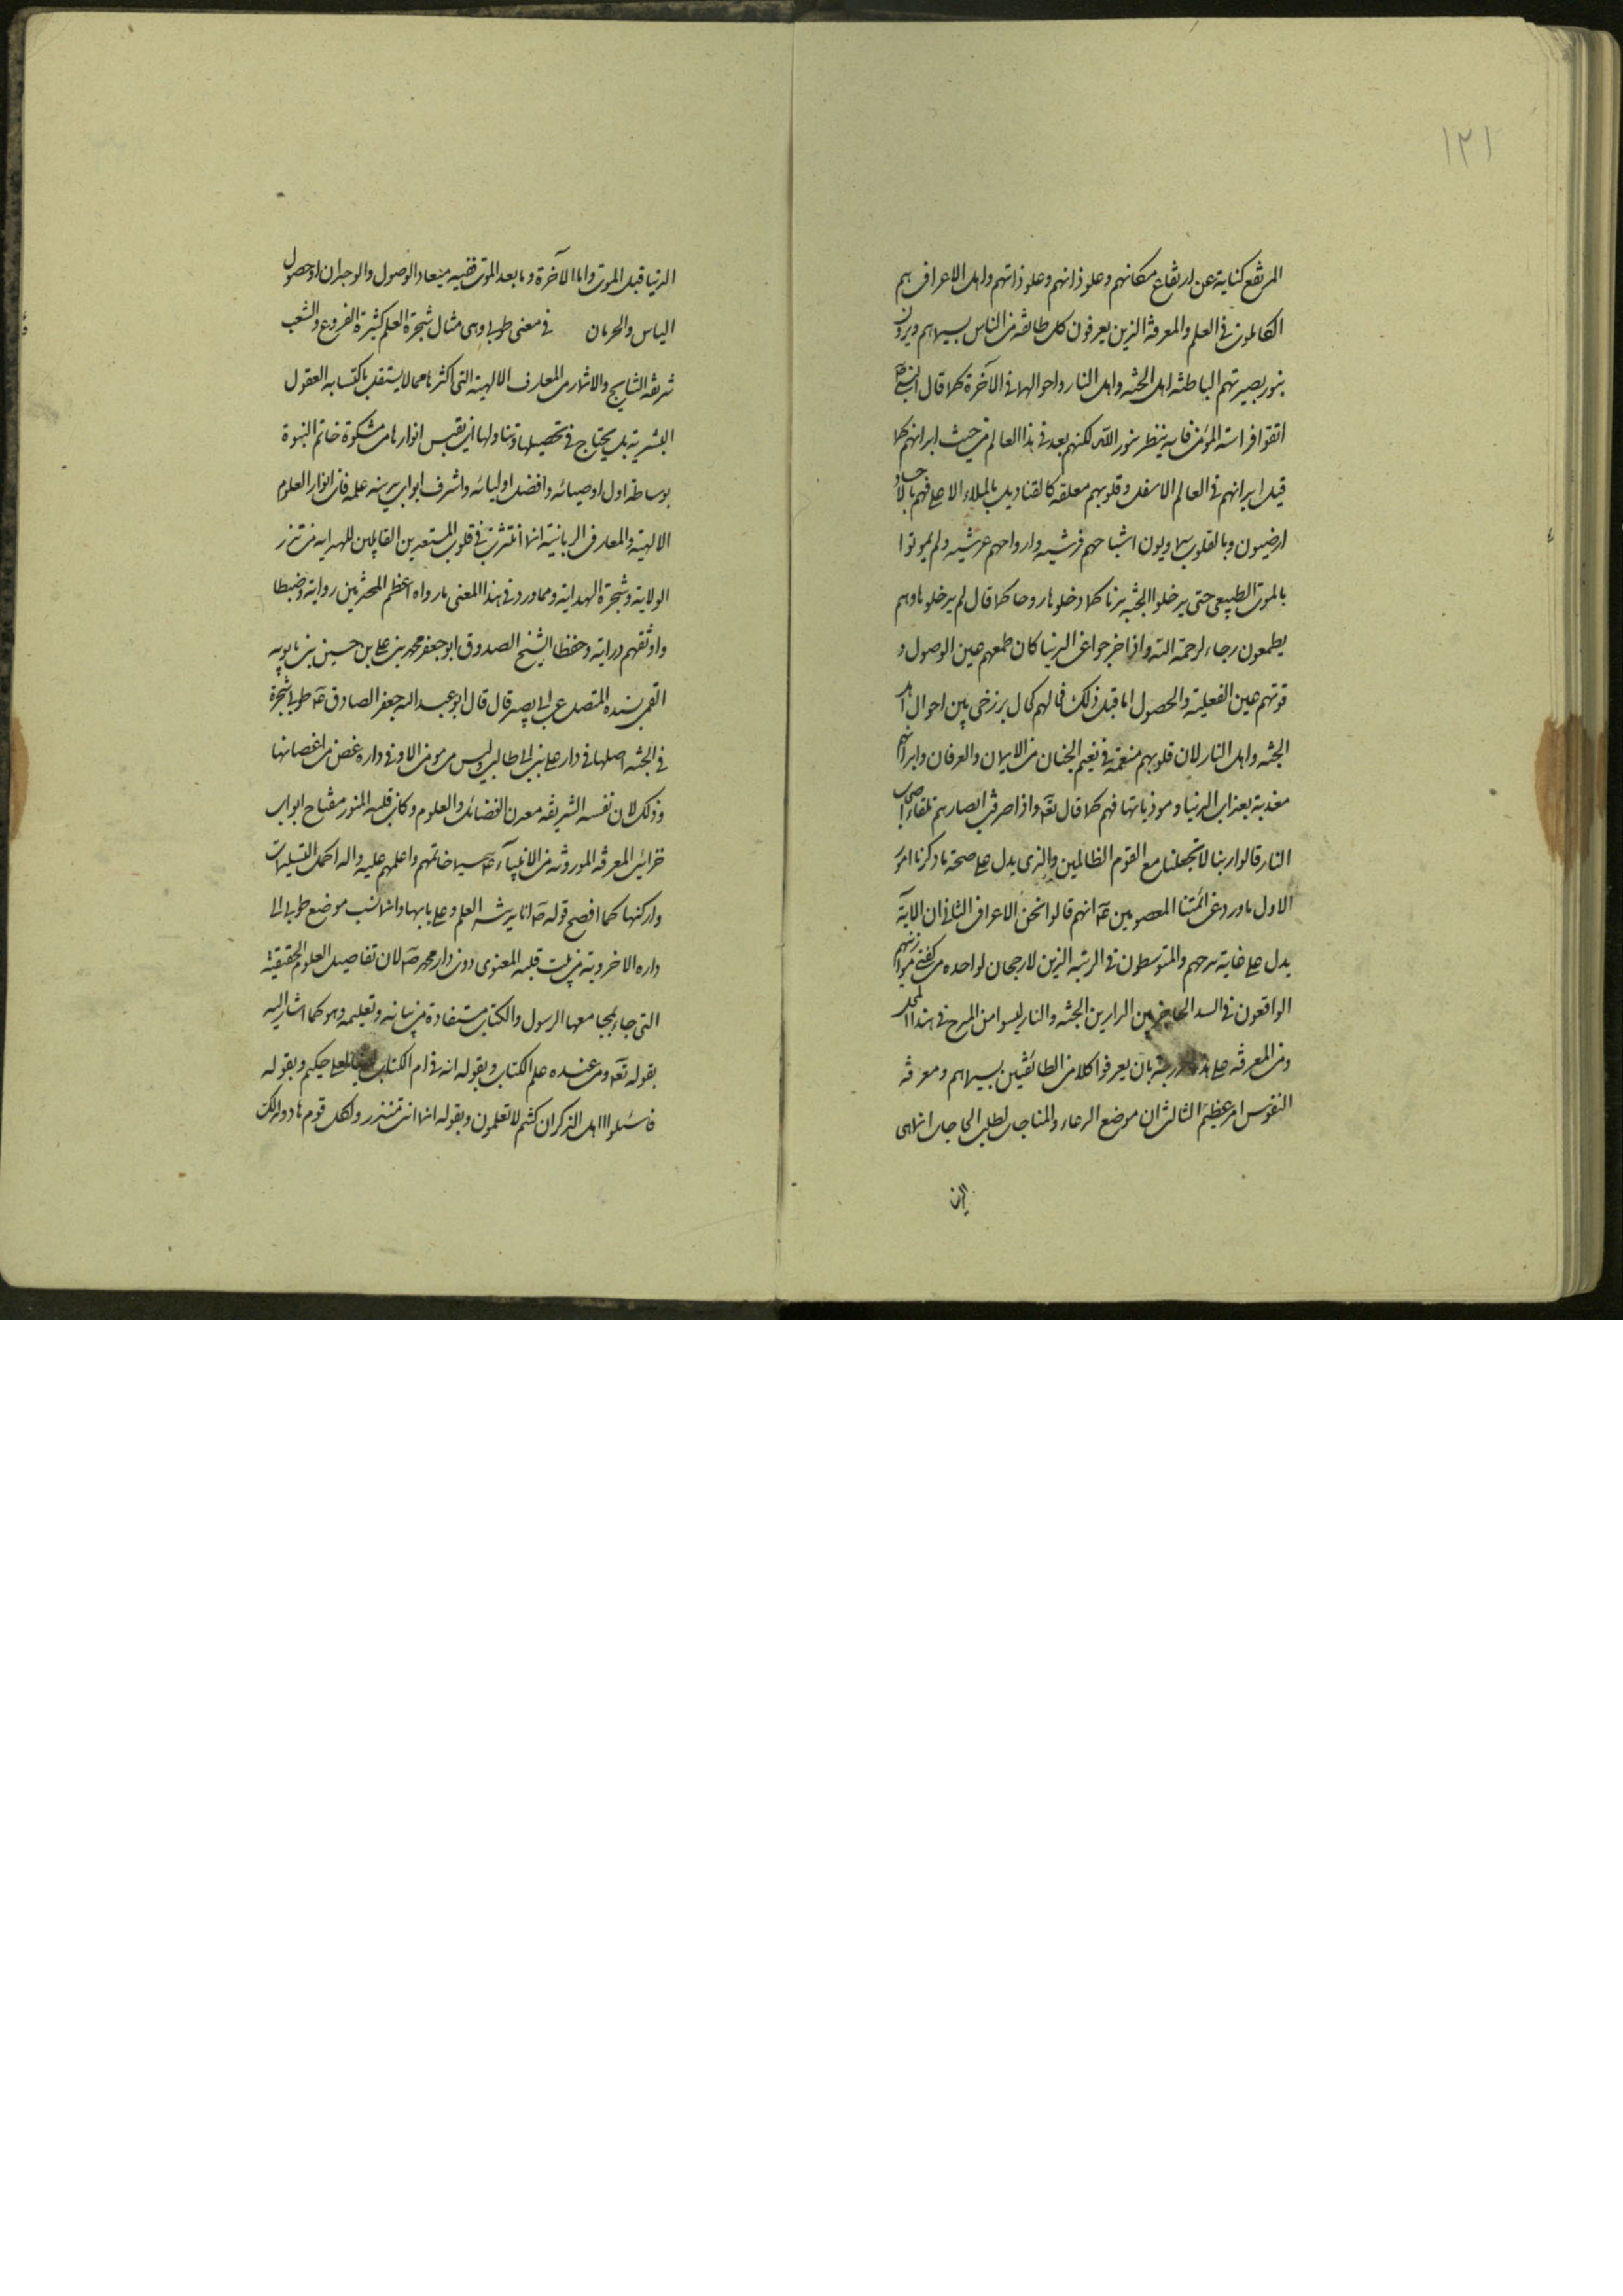 ١٢١
المرتفع كناية عن ارتفاع مكانهم وعلو ذاتهم وعلو ذاتهم واهل الاعراف هم
الكاملون فى العلم والمعرفة الذين يعرفون كل طائفة من الناس بسيماهم ويرون
بنور بصيرتهم الباطنة اهل الجنة واهل النار واحوالهما فى الآخرة كما قال النبى ص
اتقوا فراسة المؤمن فانه ينظر بنور الله لكنهم بعد فى هذا العالم من حيث ابدانهم كما
قيل ابدانهم فى العالم الاسفل وقلوبهم معلقة كالقناديل بالملاء الاعلى فهم بالاجساد
ارضيون وبالقلوب سماويون اشباحهم فرشية وارواحهم عرشية ولم يموتوا
بالموت الطبيعى حتى يدخلوا الجنة بدنا كما دخلوها روحا كما قال لم يدخلوها وهم
يطمعون رجاء لرحمة الله واذا خرجوا عن الدنيا كان طمعهم عين الوصول و
قوتهم عين الفعلية والحصول اما قبل ذلك فالهم كمال برزخى بين احوال اهل
الجنة واهل النار لان قلوبهم منعمة فى نعيم الجنان من الايمان والعرفان وابدانهم
معذبة بعذاب الدنيا وموذياتها فهم كما قال تعه واذا صرفت ابصارهم تلقاء اصحاب
النار قالوا ربنا لا تجعلنا مع القوم الظالمين والذى يدل على صحة ما ذكرنا امور
الاول ما ورد عن ائمتنا المعصومين عه انهم قالوا نحن الاعراف الثانى ان الاية
يدل على غاية مدحهم والمتوسطون فى الرتبة الذين لا رجحان لواحدة من كفتى ميزانهم
الواقعون فى السد الحاجز بين الدارين الجنة والنار ليسوا من المدح فى هذا المحل
ومن المعرفة على بان يعرفوا كلا من الطائفتين بسيماهم ومعرفة
النفوس امر عظيم الثالث ان موضع الدعاء والمناجات لطلب الحاجات انما هى
الدنيا قبل الموت واما الآخرة وما بعد الموت ففيه ميعاد الوصول والوجدان او حصول
الياس والحرمان فى معنى طوبى وهى مثال شجرة العلم كثيرة الفروع والشعب
شريفة النتايج والاثمار من المعارف الالهية التى اكثرها مما لا يستقل باكتسابه العقول
البشرية بل يحتاج فى تحصيلها وتناولها ان يقبس انوارها من مشكوة خاتم النبوة
بوساطة اول اوصيائه وافضل اوليائه واشرف ابواب مدينة علمه فان انوار العلوم
الالهية والمعارف الربانية انما انتشرت فى قلوب المستعدين القابلين للهداية من بذر
الولاية وشجرة الهداية ومما ورد فى هذا المعنى ما رواه اعظم المحدثين رواية وضبطا
واوثقهم دراية وحفظا الشيخ الصدوق ابو جعفر محمد بن على بن حسين بن بابويه
القمى بسنده المتصل عن ابى بصير قال قال ابو عبد الله جعفر الصادق عه طوبى شجرة
فى الجنة اصلها فى دار على بن ابى طالب وليس من مومن الا وفى داره غصن من اغصانها
وذلك لان نفسه الشريفة معدن الفضائل والعلوم وكان قلبه المنور مفتاح ابواب
خزائن المعرفة الموروثة من الانبياء عه سيما خاتمهم واعلمهم عليه واله اكمل التسليمات
واركنها كما افصح قوله ص انا مدينة العلم وعلى بابها وانما نسب موضع طوبى الى
داره الاخروية من بيت قلبه المعنوى دون دار محمد ص لان تفاصيل العلوم الحقيقية
التى جاء بمجامعها الرسول والكتاب مستفادة من بيانه وتعليمه وهو كما اشار اليه
بقوله تعه ومن عنده علم الكتاب وبقوله انه فى ام الكتاب لدينا لعلى حكيم وبقوله
فاسئلوا اهل الذكر ان كنتم لا تعلمون وبقوله انما انت منذر ولكل قوم هاد